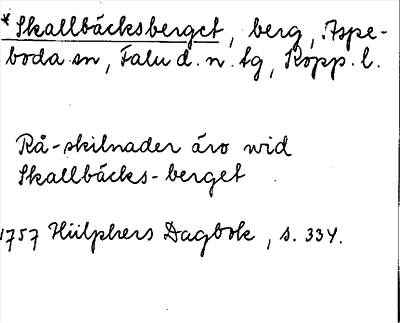 *Skallbäcksberget, berg, Aspe-
boda sn, Falu d. n. tg, Kopp. l.
Rå-skilnader äro wid
Skallbäcks-berget
1757 Hülphers Dagbok, s. 334.